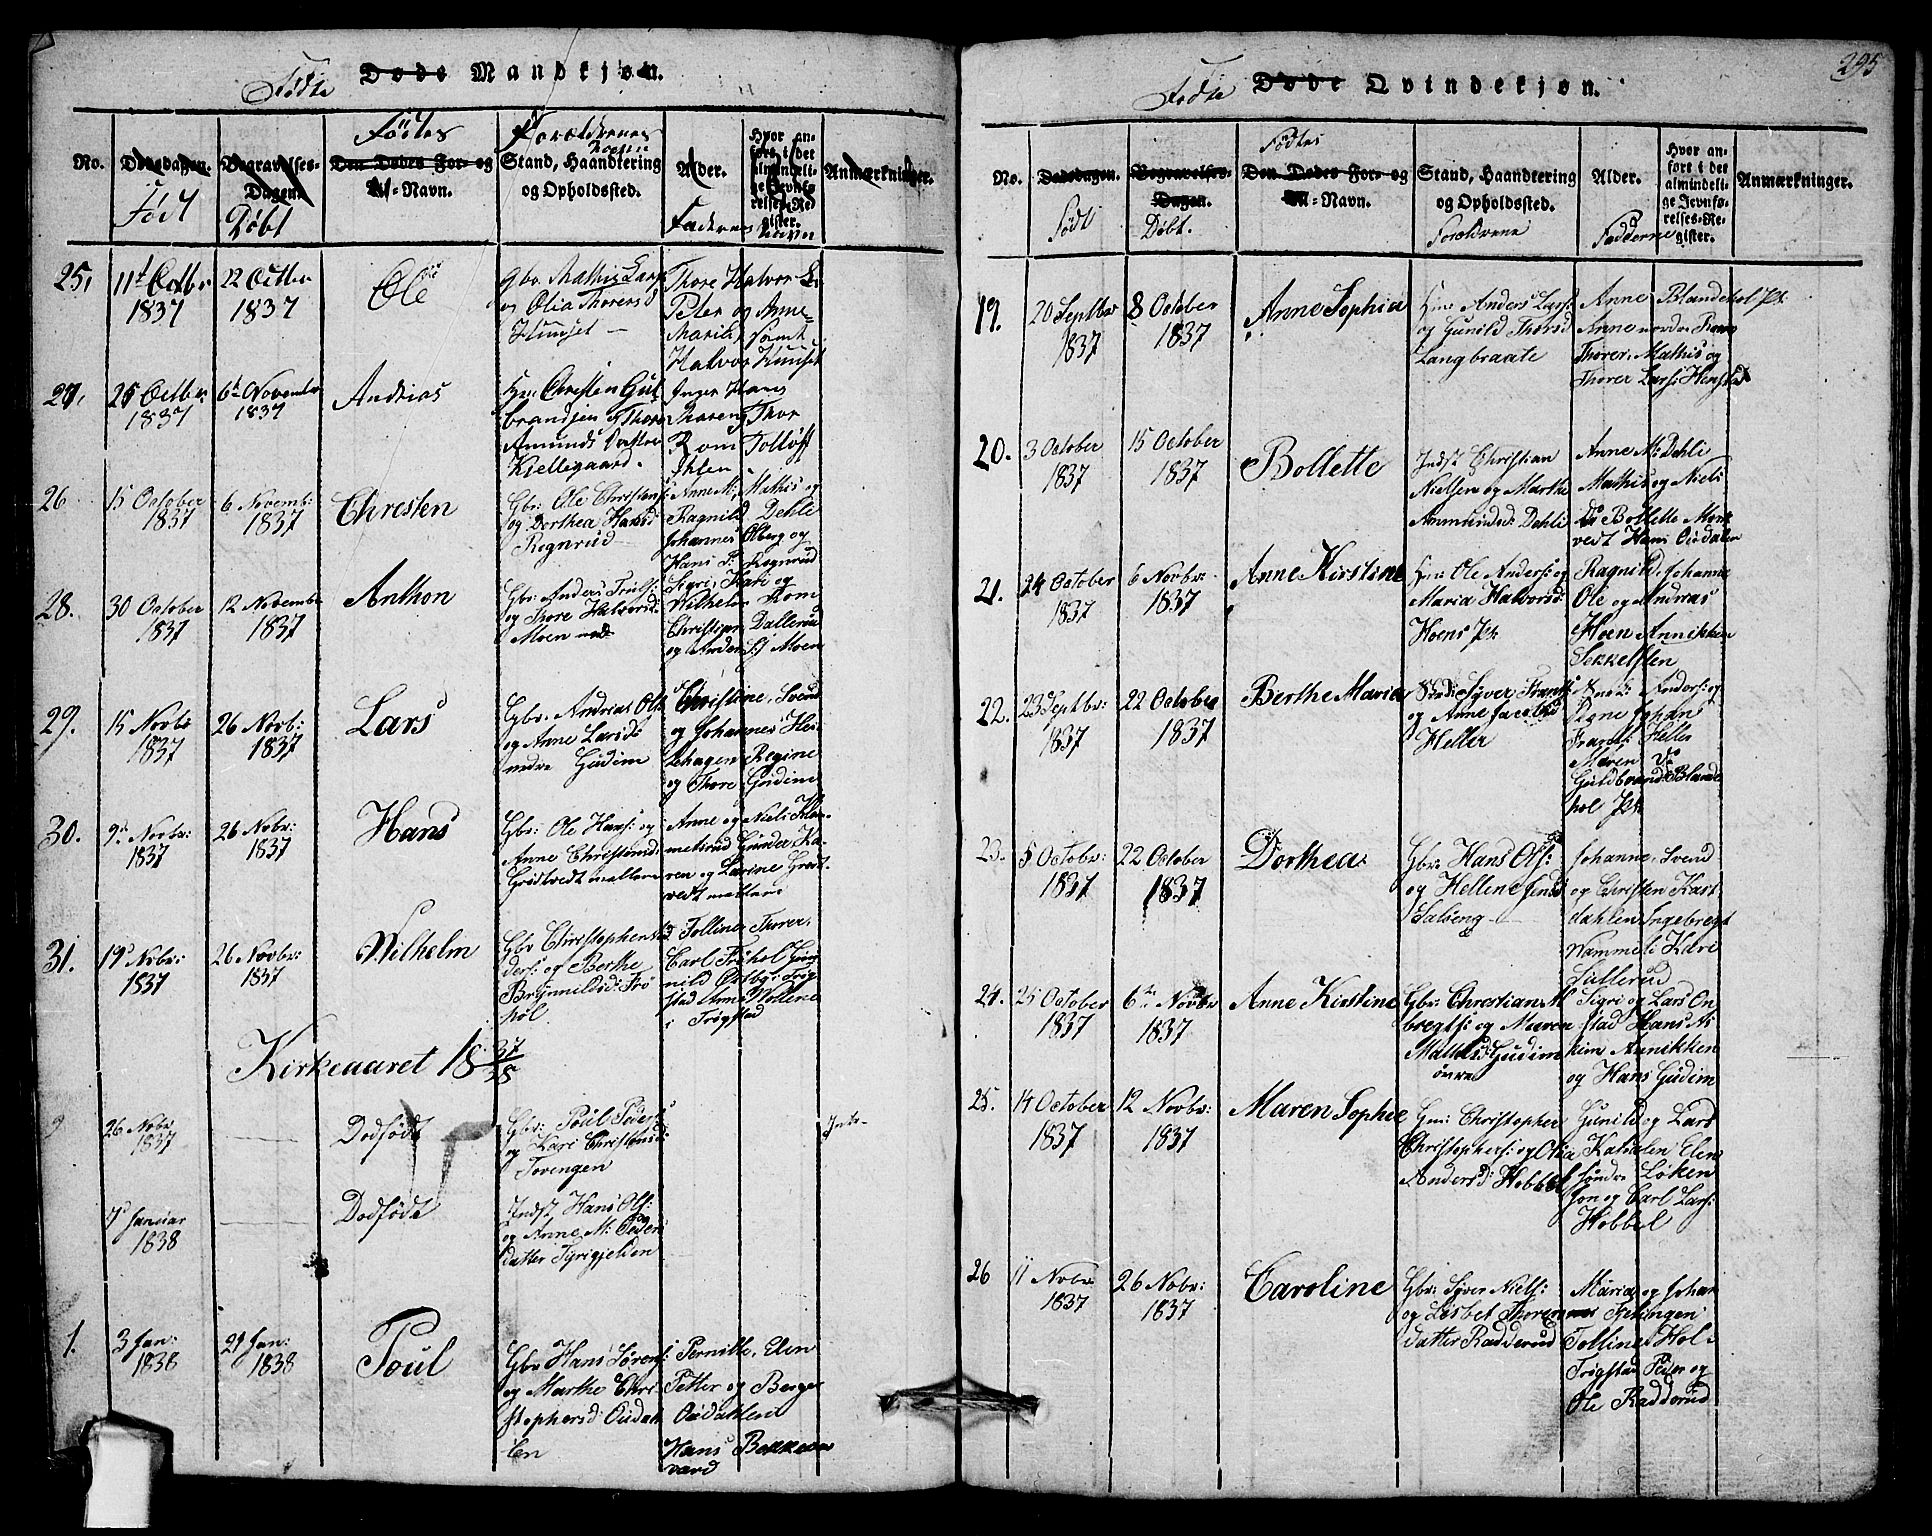 295
Fødte Døde Mandkjøn.
No.
Dødsdagen.
Født
Begravelses-
Dagen.
Døbt
Fødtes
Den Dødes For- og
Til-Navn.
Forældrenes
Navne
Stand, Haandtering
og Opholdssted.
Alder.
Faddernes Navne
Hvor an-
ført i det
almindeli-
ge Jevnfø-
relses-Re-
gister.
Anmærkninger.
25,
11t Octbr
1837
22 Octbr
1837
Ole
gbr. Mathis Lars
og Olia Thorersd
Huuset
Thore Halvor
Peter og Anne
Marik, samt
Halvor Huuset
27,
25 Octbr
1837
6t November
1837
Andrias
Christen Gul
brandsen Thore
Amunds Datter
Kjellegaard.
Inger Hans
Thoreng Thor
Rom Tolløff
Ihlen
26
15 October
1837
6 Novemb:
1837
Chresten
Gbr: Ole Christens:
og Dorthea Hansd
Regnrud
Anne M; Mathis og
Ragnild Dehle
Johannes Olberg og
Hans P: Regnrud
28.
30 October
1837
12 Novemb
1837
Anthon
Gbr: Anders Truls:
og Thore Halvorsd:
Moen
Sigri, Kari og
Wilhelm Rom
Christian Dallerud
og Anders Moen
29.
15 Novbr
1837
26 Novb:
1837
Lars
Gbr. Andrias Ols
og Anne Larsd:
nedre Gudim
Christine, Svend
og Johannes Hei-
Lehagen Regine
og Thore Gudim
30.
9de Novbr:
1837
26 Nobr:
1837
Hans
Gbr: Ole Hans: og
Anne Christensd:
Gristvedt mellem
Anne og Niels Kla-
metsrud Gunder Ka-
ren og Larine Grest-
vedt mellem
31.
19d Nobr:
1837
26. Novbr:
1837
Wilhelm
Gbr Christophers
ders: og Berthe
Brynnildsd: Frø
høl
Tolline Thorer,
Carl Frøhol Gun-
nild Østby Trøg
stad Anne Wollene
i Trøgstad
Kirkeaaret 18 37/38
26 Nobr
1837
Dødfødt
Gbr: Poul Peders
og Kari Christensd:
Tovengen
7 Januar
1838
Dødfødt
Indst Hans Ols:
og Anne M: Peders
datter Tyrigjelden
1.
3 Jan:
1838
21 Jan:
1838
Poul
Gbr Hans Sørens:
og Marthe Chri-
stophersd: Ousdah
len
Pernille, Elen
Petter og Berger
Ousdahlen
Hans Bekkeven
vard
Fødte Døde Qvindekjøn.
No.
Dødsdagen.
Født
Begravelses-
Dagen.
Døbt.
Fødtes
Den Dødes For- og
Til-Navn.
Stand, Haandtering
og Opholdssted.
Forældrene
Alder.
Fadderne
Hvor an-
ført i det
almindeli-
ge Jevnfø-
relses-Re-
gister.
Anmærkninger.
19.
20 Septbr
1837
8 October
1837
Anne Sophia
Anders Lars:
og Gunild Thorsd
Langbraate
Anne Blandehol Pl:
Anne nordre Rom
Thorer, Mathis og
Thorer Lars: Henstad
20.
3 October
1837
15 October
1837
Bollette
Indst Christian
Nielsen og Marthe
Ammundsd: Dehli
Anne M: Dehli
Mathis og Niels
do Bollette Mork
vedt Hans Ousdalen
21.
24 October
1837
6 Novbr:
1837
Anne Kirstine
Ole Anders: og
Maria Halvorsd:
Hoens Pl:
Ragnild, Johanne
Ole og Andreas
Hoen Annikken
Sekkelsten
22.
23 Septbr:
1837
22 October
1837
Berthe Maria
Syver Frants
og Anne Jacobsd
Heller
Anders: og
Signe Johan
Frants: Heller
Maren do
Guldbrand Blande
hol Pl:
23.
5 Octobr:
1837
22 October
1837
Dorthea
Gbr: Hans Ols:
og Hellene Jensd
Salieng
Johanne, Svend
og Christen Kast
dahlen Ingebregt
Wammeli Kari
Sullerud
24.
25 October
1837
6te Novbr
1837
Anne Kirstine
Gbr: Chrestian M
bregts: og Maren
Mathisd: Gudim
øvre
Sigri og Lars On
stad Hans As
kim Annikken
og Hans Gudim
25.
14 October
1837
12 Novbr:
1837
Maren Sophie
Christopher
Christophers: og Olia
Andersd: Hobbel
Gunild og Lars
Katralen Elen
søndre Løken
Jon og Carl Lars:
Hobbel
26
11 Nobr
1837
26 Nobr:
1837
Caroline
Gbr: Syver Niels:
og Lisbet Thoren
datter Radderud
Maria og Johan
Fjelingen
Tolline Hol-
Trøgstad Peder og
Ole Radderud